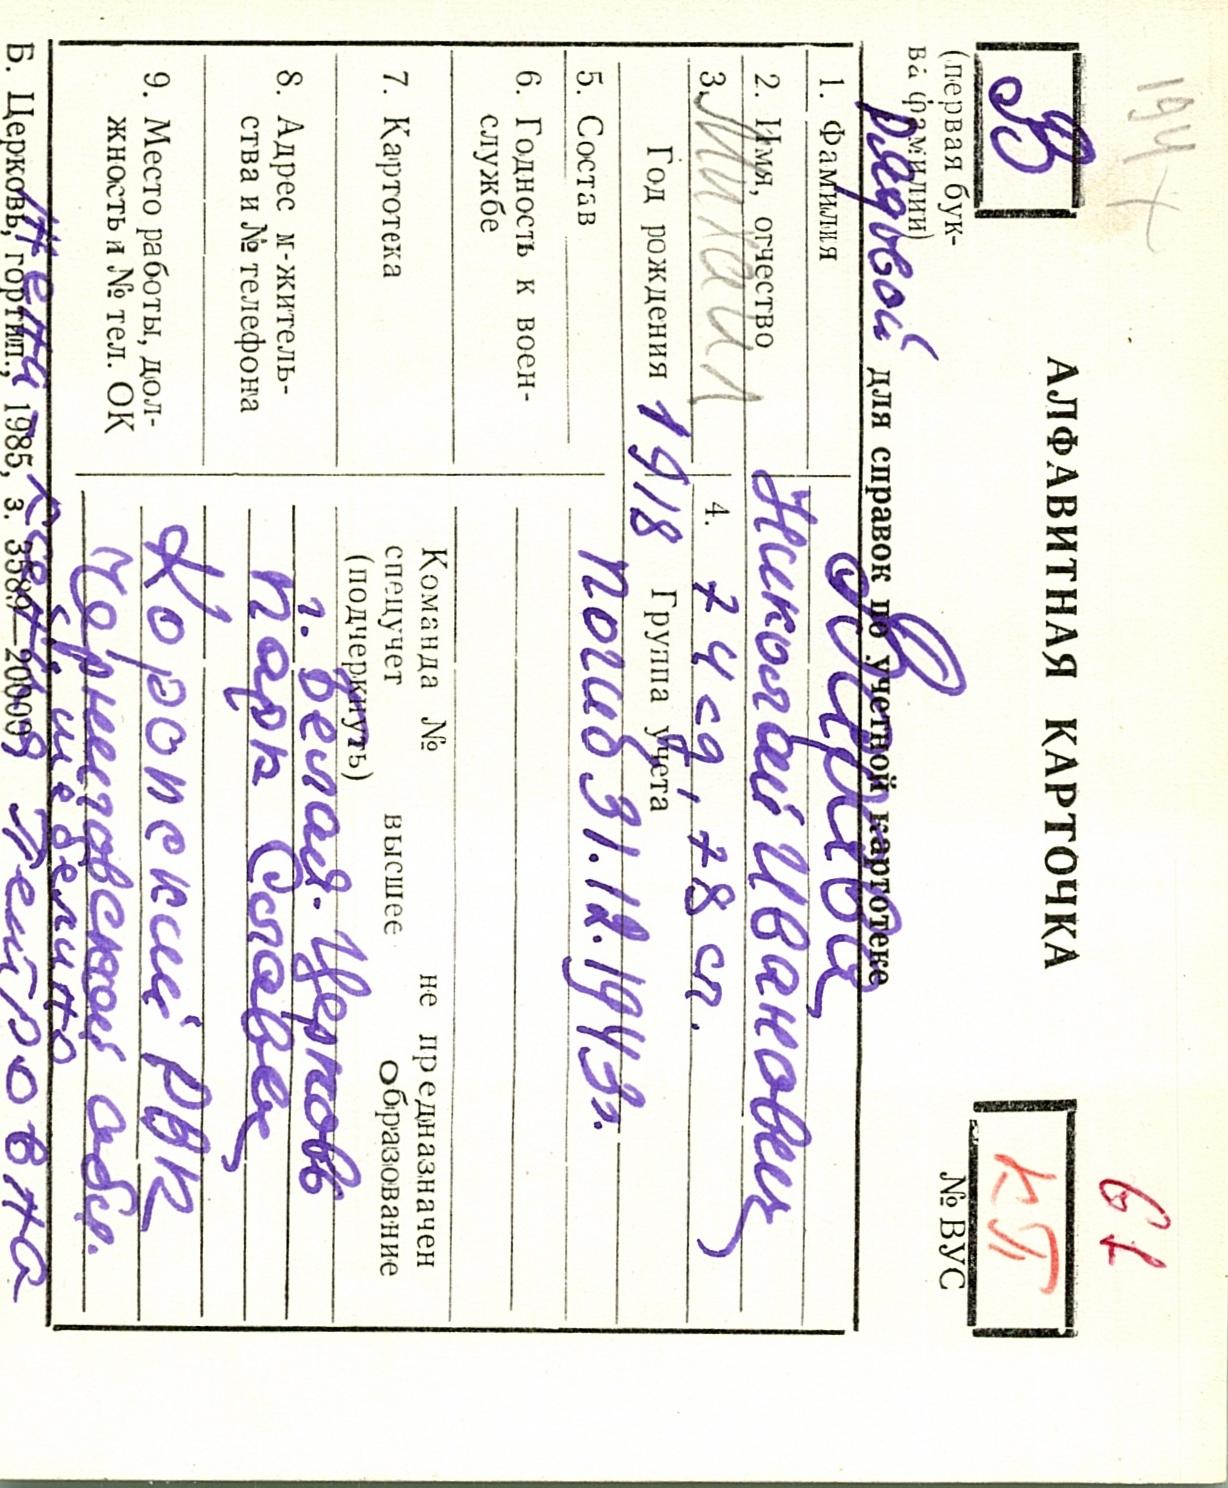 194 х
61
В
АЛФАВИТНАЯ КАРТОЧКА
КП
(первая бук-
ва фамилии)
№ ВУС
рядовой для справок по учетной картотеке
1. Фамилия
2. Имя, отчество Николай Иванович
Михаил
3. 4. 74 сд, 78 сп.
Год рождения 1918 Группа учета
5. Состав погиб 31.12.1943г.
6. Годность к воен-
службе
7. Картотека Команда № не предназначен
спецучет высшее образование
(подчеркнуть)
8. Адрес м-житель-
ства и № телефона
г. Белая-Церковь
парк Слава
9. Место работы, дол-
жность и № тел. ОК
Коропский РВК
Черниговской обл.
жена Петровна
Б. Церковь, гортип., 1985, з. 3589—20000